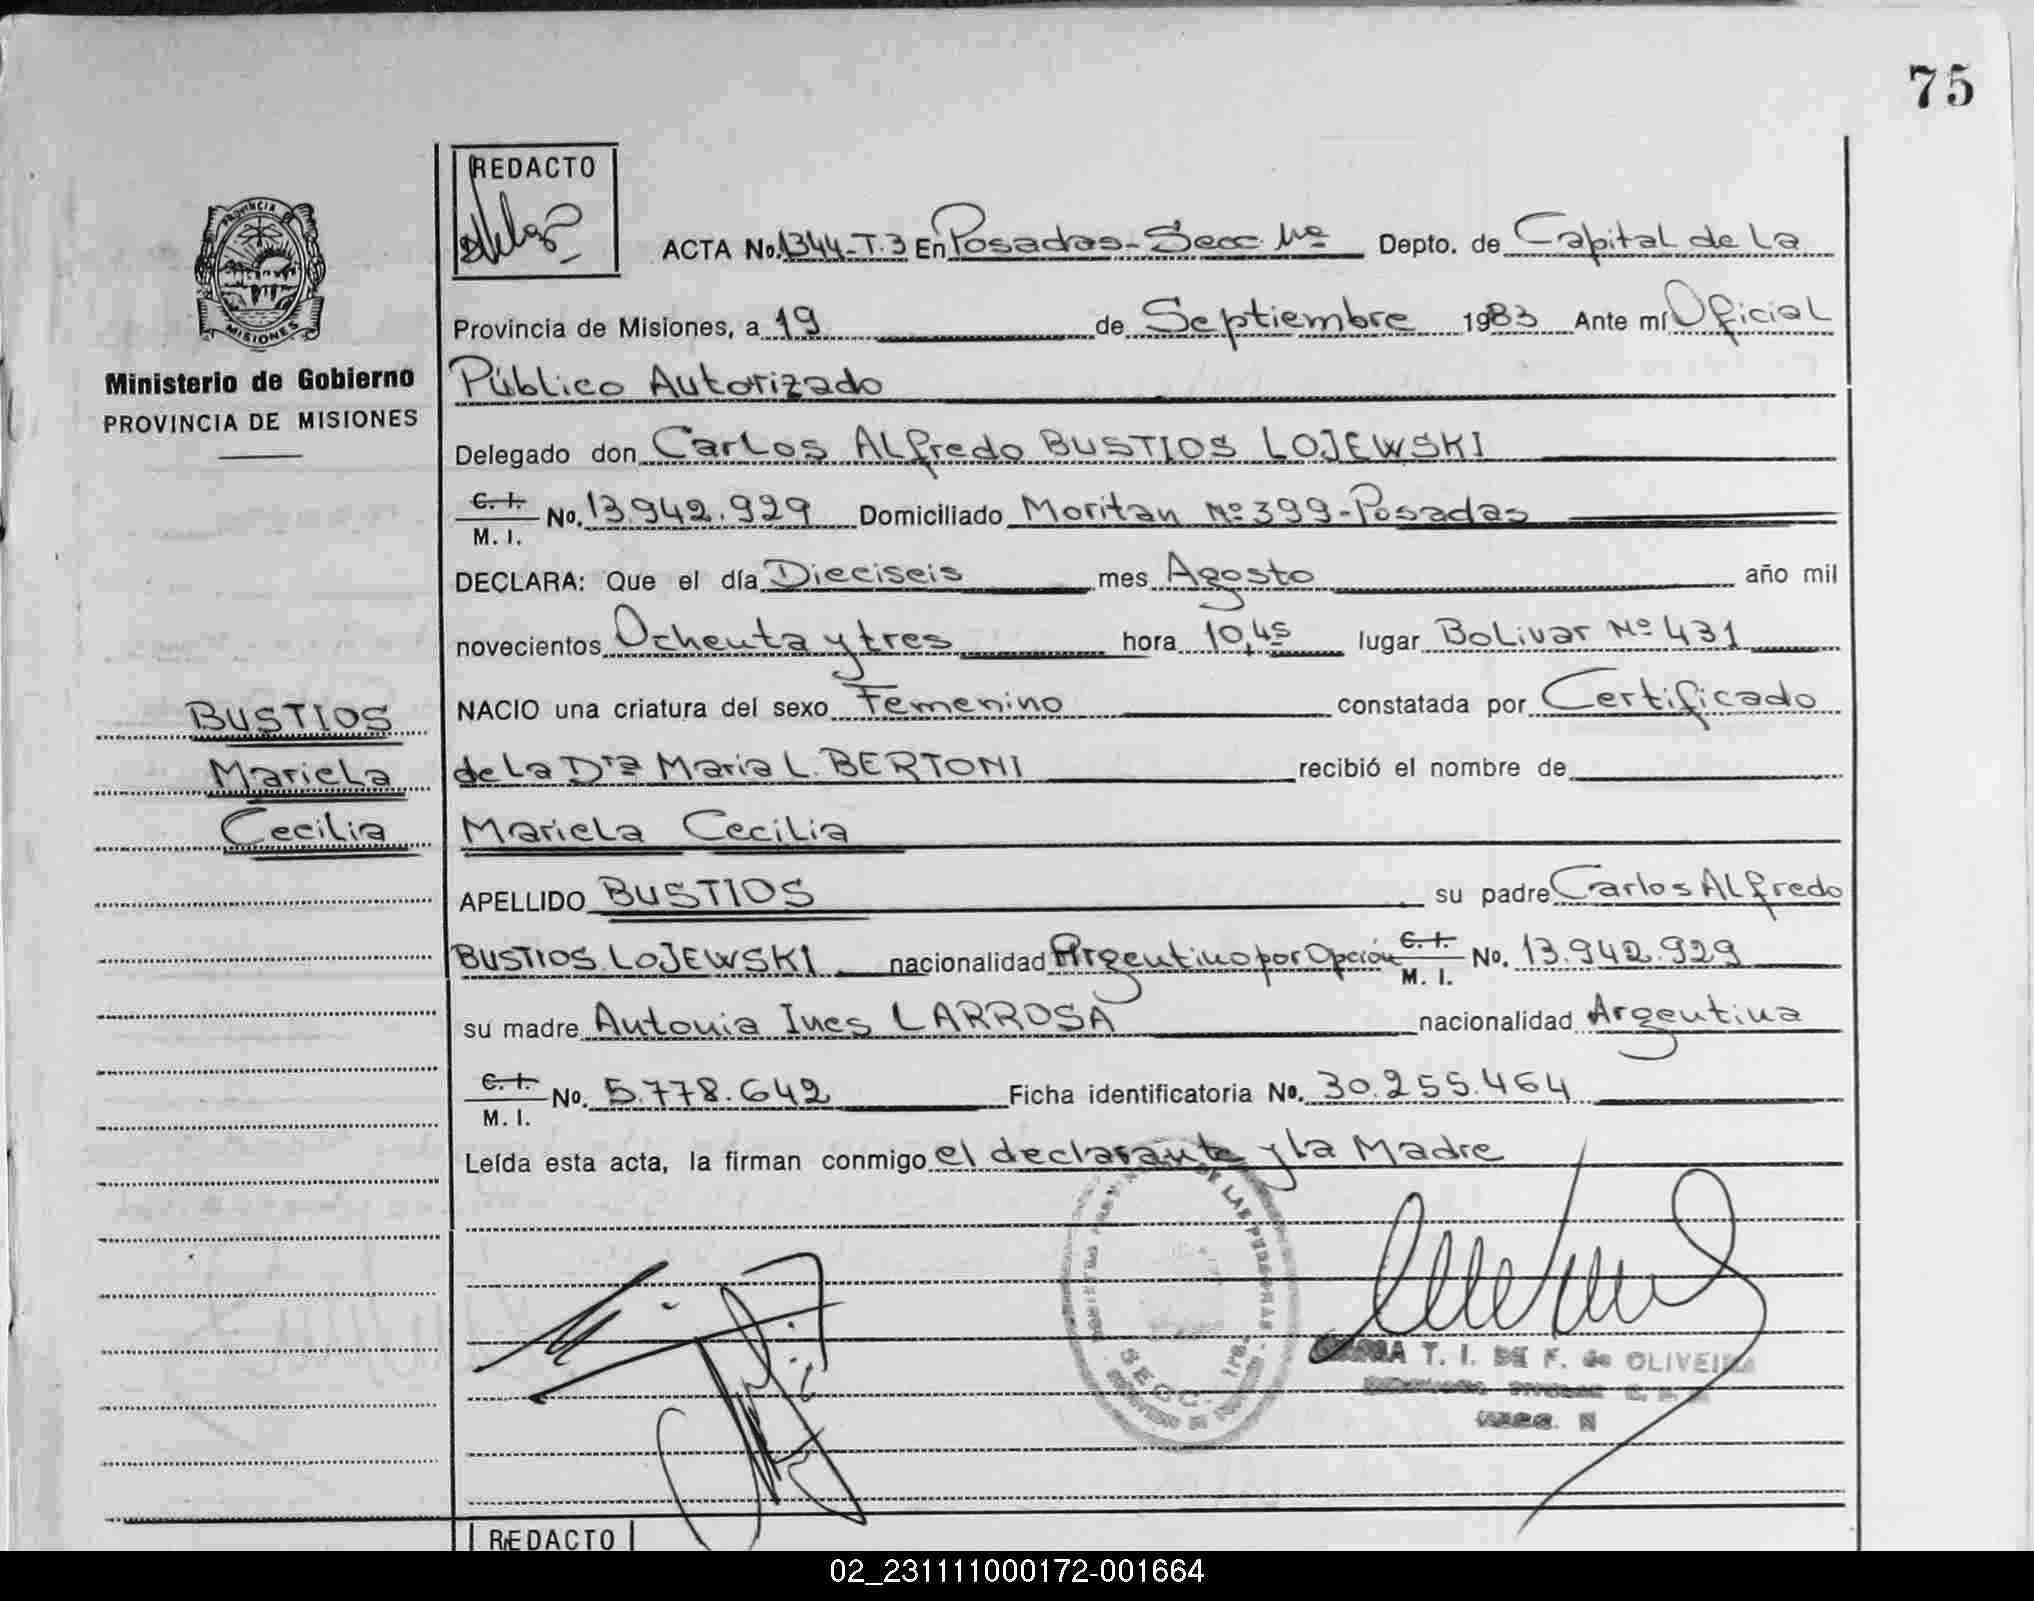 75
REDACTO
PROVINCIA
MISIONES
Ministerio de Gobierno
PROVINCIA DE MISIONES
ACTA No. 1344-T.3 En Posadas-Secc. 1ra Depto. de Capital de La
Provincia de Misiones, a 19 de Septiembre 1983 Ante mí Oficial
Público Autorizado
Delegado don Carlos ALfredo BUSTIOS LOJEWSKI
C. I.
M. I. No. 13.942.929 Domiciliado Moritan Nº 399-Posadas
DECLARA: Que el día Dieciseis mes Agosto año mil
novecientos Ochenta y tres hora 10,45 lugar BoLivar Nº 431
NACIO una criatura del sexo Femenino constatada por Certificado
de La Dra Maria L. BERTONI recibió el nombre de
MarieLa CeciLia
BUSTIOS
MarieLa
CeciLia
APELLIDO BUSTIOS su padre Carlos ALfredo
BUSTIOS LOJEWSKI nacionalidad Argentino por Opción C. I.
M. I. No. 13.942.929
su madre Antonia Ines LARROSA nacionalidad Argentina
C. I.
M. I. No. 5.778.642 Ficha identificatoria No. 30.255.464
Leída esta acta, la firman conmigo el declarante y La Madre
DE LAS PERSONAS
SECC. 1ra.
T. I. DE F. de OLIVEIRA
REDACTO
02_231111000172-001664